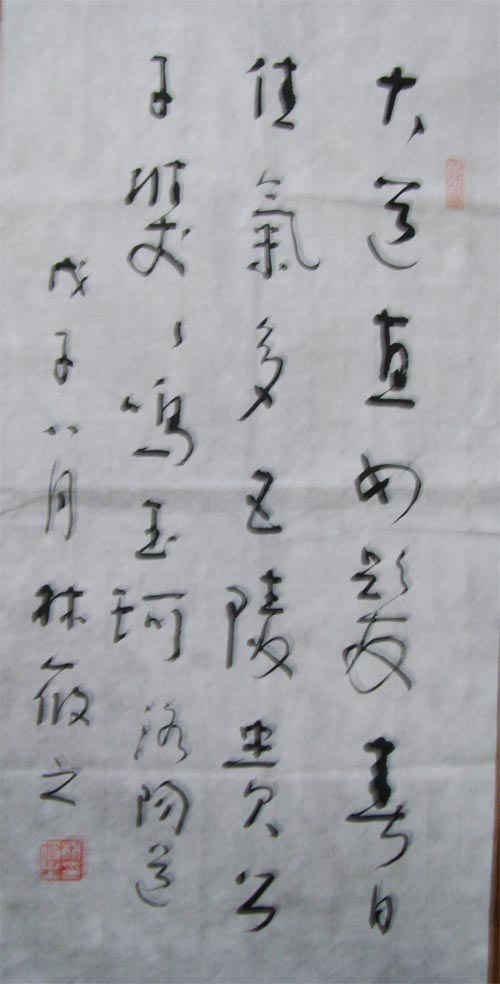 大道直如髮春日
佳氣多五陵貴公
子雙〻鳴玉珂洛陽道
戊子八月林筱之